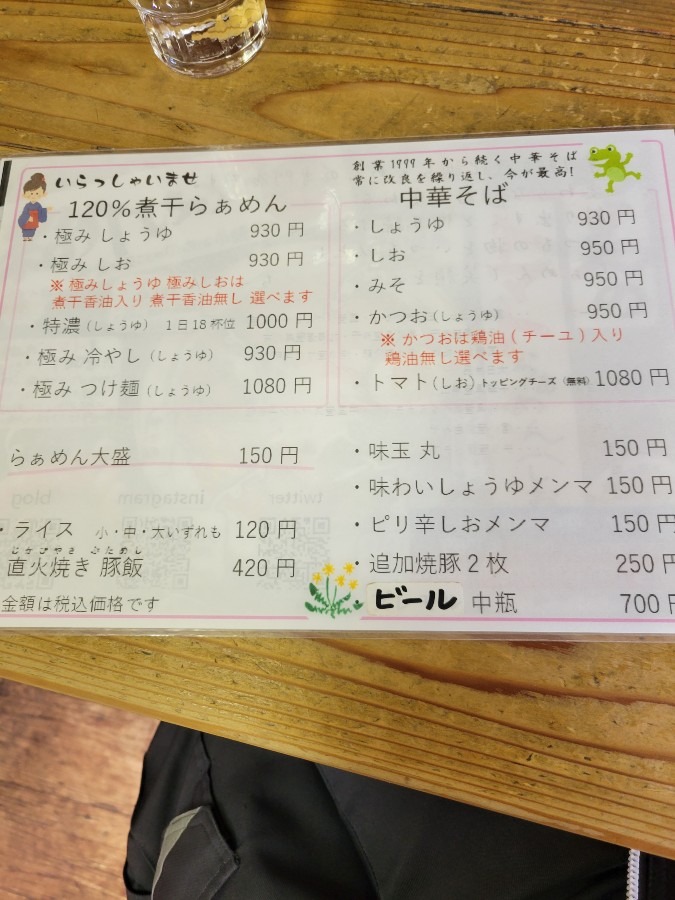 いらっしゃいませ
120%煮干らぁめん
・極み しょうゆ 930 円
・極み しお 930 円
※ 極みしょうゆ 極みしおは
煮干香油入り 煮干香油無し 選べます
・特濃 (しょうゆ) 1日18杯位 1000 円
・極み 冷やし (しょうゆ) 930 円
・極み つけ麺 (しょうゆ) 1080 円
らぁめん大盛 150 円
・ライス 小・中・大いずれも 120 円
じかびやき ぶためし
直火焼き 豚飯 420 円
金額は税込価格です
創業1999年から続く中華そば
常に改良を繰り返し、今が最高!
中華そば
・しょうゆ 930 円
・しお 950 円
・みそ 950 円
・かつお (しょうゆ) 950 円
※ かつおは鶏油 (チーユ) 入り
鶏油無し選べます
・トマト (しお) トッピングチーズ (無料) 1080 円
・味玉 丸 150 円
・味わいしょうゆメンマ 150 円
・ピリ辛しおメンマ 150 円
・追加焼豚2枚 250 円
・ビール 中瓶 700 円
twitter
instagram
blog